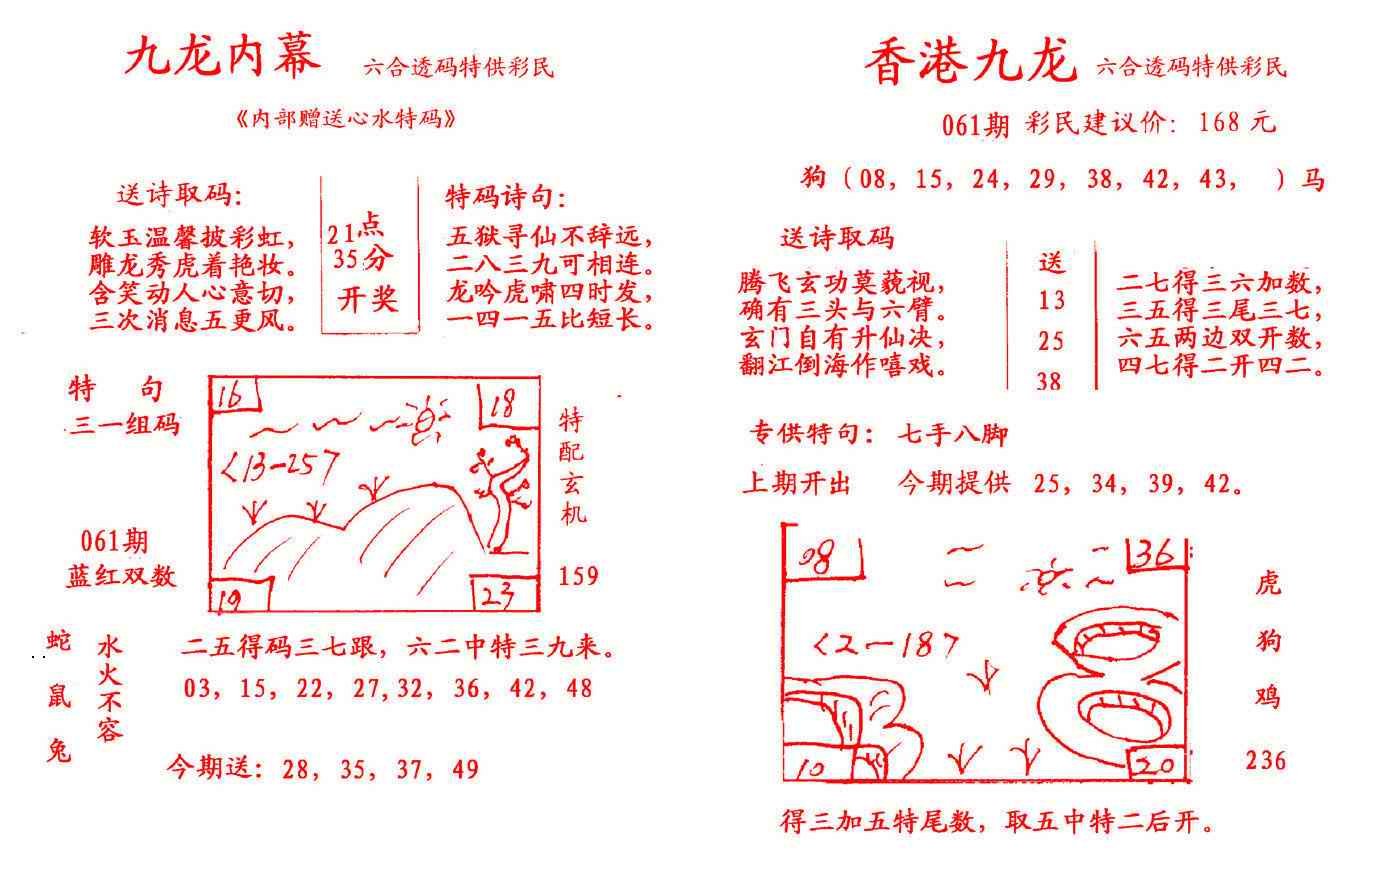 九龙内幕 六合透码特供彩民
《内部赠送心水特码》
送诗取码：
软玉温馨披彩虹，
雕龙秀虎着艳妆。
含笑动人心意切，
三次消息五更风。
21点
35分
开奖
特码诗句：
五狱寻仙不辞远，
二八三九可相连。
龙吟虎啸四时发，
一四一五比短长。
特 句
三一组码
061期
蓝红双数
16
18
<13-25>
19
23
特配玄机
159
蛇鼠兔
水火不容
二五得码三七跟，六二中特三九来。
03，15，22，27,32，36，42，48
今期送：28，35，37，49
香港九龙 六合透码特供彩民
061期 彩民建议价：168元
狗（08，15，24，29，38，42，43， ）马
送诗取码
腾飞玄功莫藐视，
确有三头与六臂。
玄门自有升仙决，
翻江倒海作嘻戏。
送
13
25
38
二七得三六加数，
三五得三尾三七，
六五两边双开数，
四七得二开四二。
专供特句：七手八脚
上期开出 今期提供 25，34，39，42。
08
36
<2-18>
10
20
虎
狗
鸡
236
得三加五特尾数，取五中特二后开。